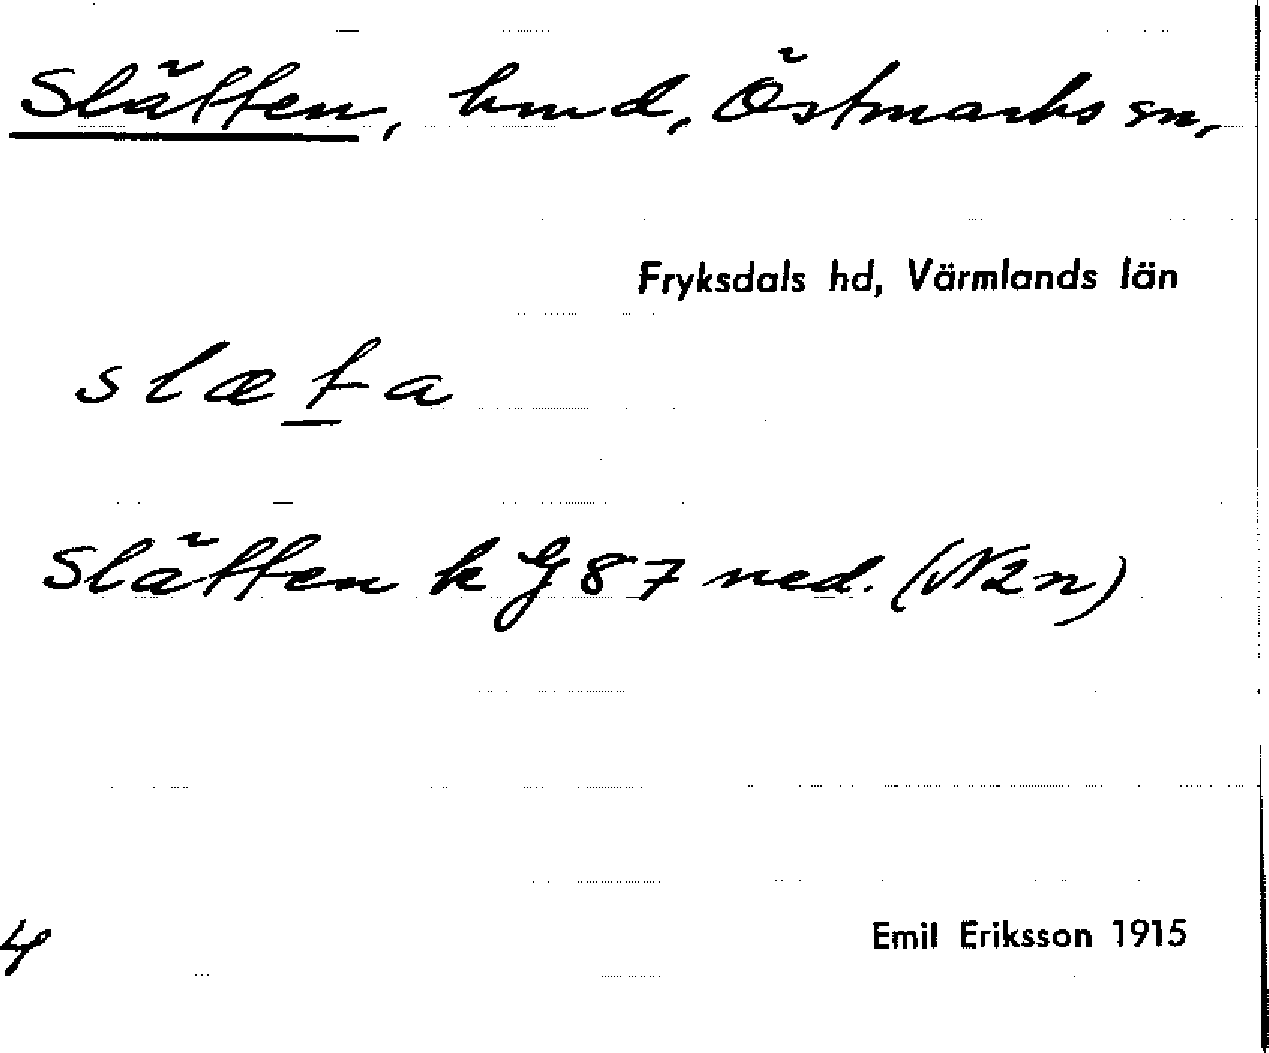 Slätten, hmd, Östmarks sn,
Fryksdals hd, Värmlands län
slæta
Slätten k G 87 ned. (N2n)
Emil Eriksson 1915
4